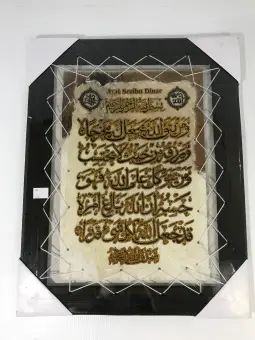 Ayat Seribu Dinar
بسم الله الرحمن الرحيم
ومن يتق الله يجعل له مخرجا
ويرزقه من حيث لا يحتسب
ومن يتوكل على الله فهو
حسبه إن الله بالغ أمره
قد جعل الله لكل شيء قدرا